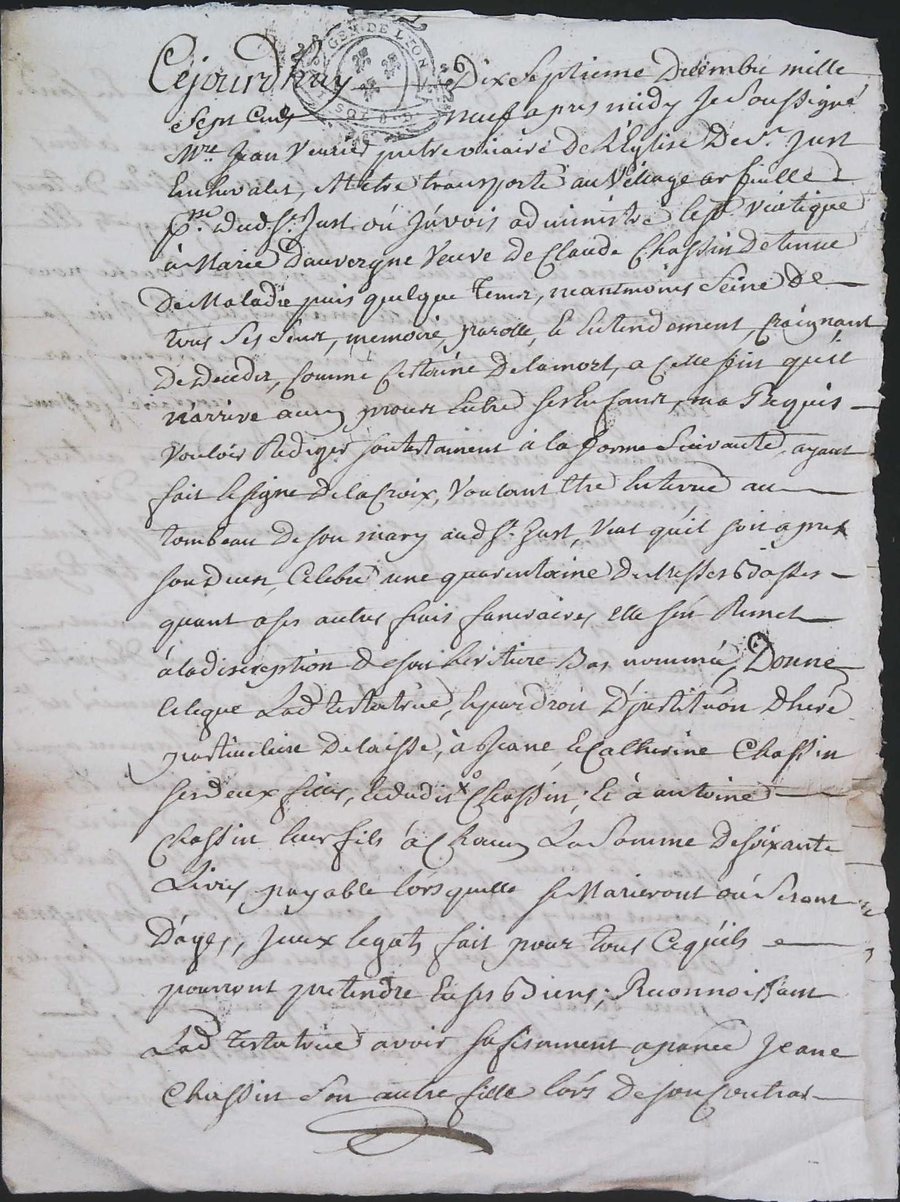 GEN. DE LYON
Cejourdhuy Dix Septieme Decembre mille
Sept Cens neuf apres midy Je Soussigné
Mre. Jean Veurier pretre vicaire de L'Eglise De St. Just
En chevalet, M'etre transporté au Village arfeuille
pss. dud. St. Just ou J'avois administré le St. viatique
à Marie Dauvergne Veuve de Claude Chassin Detenue
De Maladie puis quelque tems, neantmoins Seine De
tous Ses Sens, memoire, parolle, & Entendement, Craignant
De Deceder, Comme Certaine De la mort, a Celle fin qu'il
n'arrive aucun proces Entre ses Enfans, m'a Requis
Vouloir Rediger son testament à la forme Suivante, ayant
fait le signe De la Croix, Voulant être Enterrée au
tombeau De son mary aud. St. Just, Veut qu'il soit apres
son Deces, Celebré une quarentaine De Messes basses
quant a ses autres frais funeraires, elle s'en Remet
à la discreption De son heritiere Bas nommée, Donne
Legue Lad. testatrice, & par droit D'institution D'heré
particuliere Delaisse, à Jeane, & Catherine Chassin
ses deux filles, & dudit Chassin; & à antoine
Chassin leur fils à Chacun La Somme De soixante
Livres payable lorsquelle se Marieront ou Seront
D'ages, Jceux legats fait pour tous Ce qu'ils
pourront pretendre En ses Biens; Reconnoissant
Lad. testatrice avoir sufisamment apanée Jeane
Chassin Son autre fille lors De son Contrat